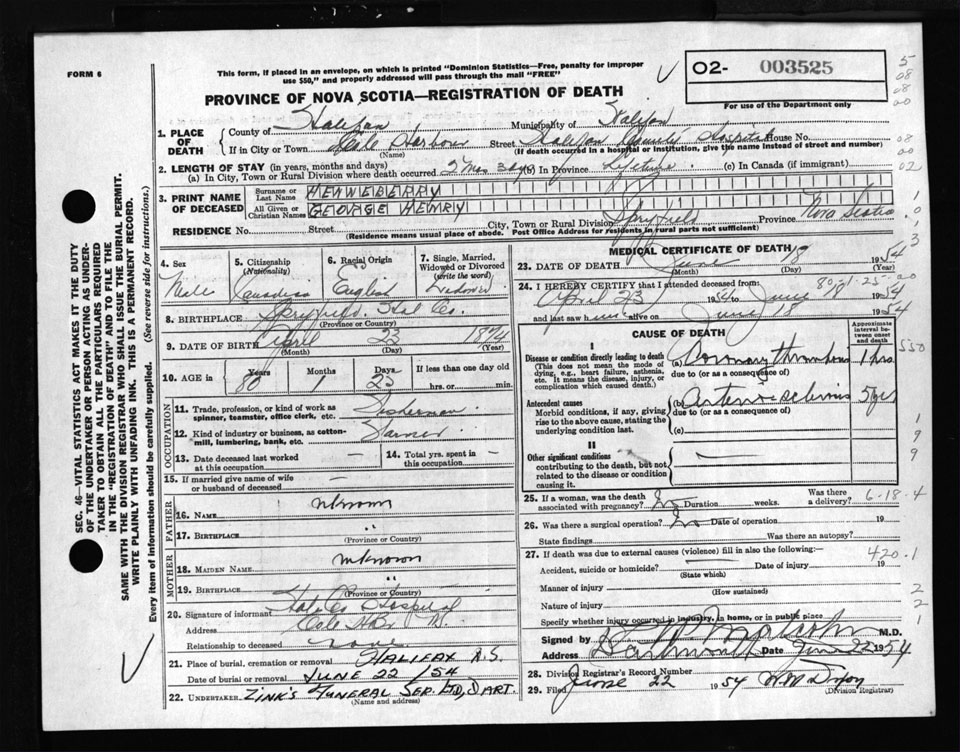 FORM 6
This form, if placed in an envelope, on which is printed "Dominion Statistics—Free, penalty for improper
use $50," and properly addressed will pass through the mail "FREE"
02- 003525
For use of the Department only
PROVINCE OF NOVA SCOTIA—REGISTRATION OF DEATH
1. PLACE OF DEATH
County of Halifax Municipality of Halifax
If in City or Town Cole Harbour Street Halifax County Hospital House No.
(Name) (If death occurred in a hospital or institution, give the name instead of street and number)
2. LENGTH OF STAY (in years, months and days)
(a) In City, Town or Rural Division where death occurred 2 Mos 3 dys (b) In Province Lifetime (c) In Canada (if immigrant)
3. PRINT NAME OF DECEASED
Surname or Last Name HENNEBERRY
All Given or Christian Names GEORGE HENRY
RESIDENCE No. Street City, Town or Rural Division Spryfield Province Nova Scotia
(Residence means usual place of abode. Post Office Address for residents in rural parts not sufficient)
4. Sex Male
5. Citizenship (Nationality) Canadian
6. Racial Origin English
7. Single, Married, Widowed or Divorced (write the word) Widower
8. BIRTHPLACE Spryfield. Hal Co.
(Province or Country)
9. DATE OF BIRTH April 23 1874
(Month) (Day) (Year)
10. AGE in Years 80 Months 1 Days 23 If less than one day
hrs. or min.
OCCUPATION
11. Trade, profession, or kind of work as spinner, teamster, office clerk, etc. Fisherman
12. Kind of industry or business, as cotton-mill, lumbering, bank, etc.
13. Date deceased last worked at this occupation —
14. Total yrs. spent in this occupation —
15. If married give name of wife or husband of deceased —
FATHER
16. NAME unknown
17. BIRTHPLACE "
(Province or Country)
MOTHER
18. MAIDEN NAME unknown
19. BIRTHPLACE "
(Province or Country)
20. Signature of informant Hal Co Hospital
Address Cole Hbr NS
Relationship to deceased none
21. Place of burial, cremation or removal HALIFAX N.S.
Date of burial or removal JUNE 22/54
22. UNDERTAKER ZINK'S FUNERAL SER. LTD, DART.
(Name and address)
MEDICAL CERTIFICATE OF DEATH
23. DATE OF DEATH June 18 1954
(Month) (Day) (Year)
24. I HEREBY CERTIFY that I attended deceased from:
April 23 1954 to June 1954
and last saw him alive on June 18 1954
CAUSE OF DEATH
Approximate interval between onset and death
I
Disease or condition directly leading to death (This does not mean the mode of dying, e.g., heart failure, asthenia, etc. It means the disease, injury, or complication which caused death.)
(a) Coronary thrombosis 1 hrs
due to (or as a consequence of)
Antecedent causes
Morbid conditions, if any, giving rise to the above cause, stating the underlying condition last.
(b) Arteriosclerosis 5 yrs
due to (or as a consequence of)
(c)
II
Other significant conditions contributing to the death, but not related to the disease or condition causing it.
25. If a woman, was the death associated with pregnancy? No Duration weeks. Was there a delivery?
6-18-4
26. Was there a surgical operation? No Date of operation 19
State findings Was there an autopsy?
27. If death was due to external causes (violence) fill in also the following:—
420.1
Accident, suicide or homicide? Date of injury 19
(State which)
Manner of injury
(How sustained)
Nature of injury
Specify whether injury occurred in industry, in home, or in public place
Signed by Malcolm M.D.
Address Dartmouth Date June 22 1954
28. Division Registrar's Record Number
29. Filed June 22 1954 W M Dixon
(Division Registrar)
SEC. 46—VITAL STATISTICS ACT MAKES IT THE DUTY
OF THE UNDERTAKER OR PERSON ACTING AS UNDERTAKER
TO OBTAIN ALL THE PARTICULARS REQUIRED
IN THE "REGISTRATION OF DEATH" AND TO FILE THE
SAME WITH THE DIVISION REGISTRAR WHO SHALL ISSUE THE BURIAL PERMIT.
WRITE PLAINLY WITH UNFADING INK. THIS IS A PERMANENT RECORD.
Every item of information should be carefully supplied. (See reverse side for instructions.)